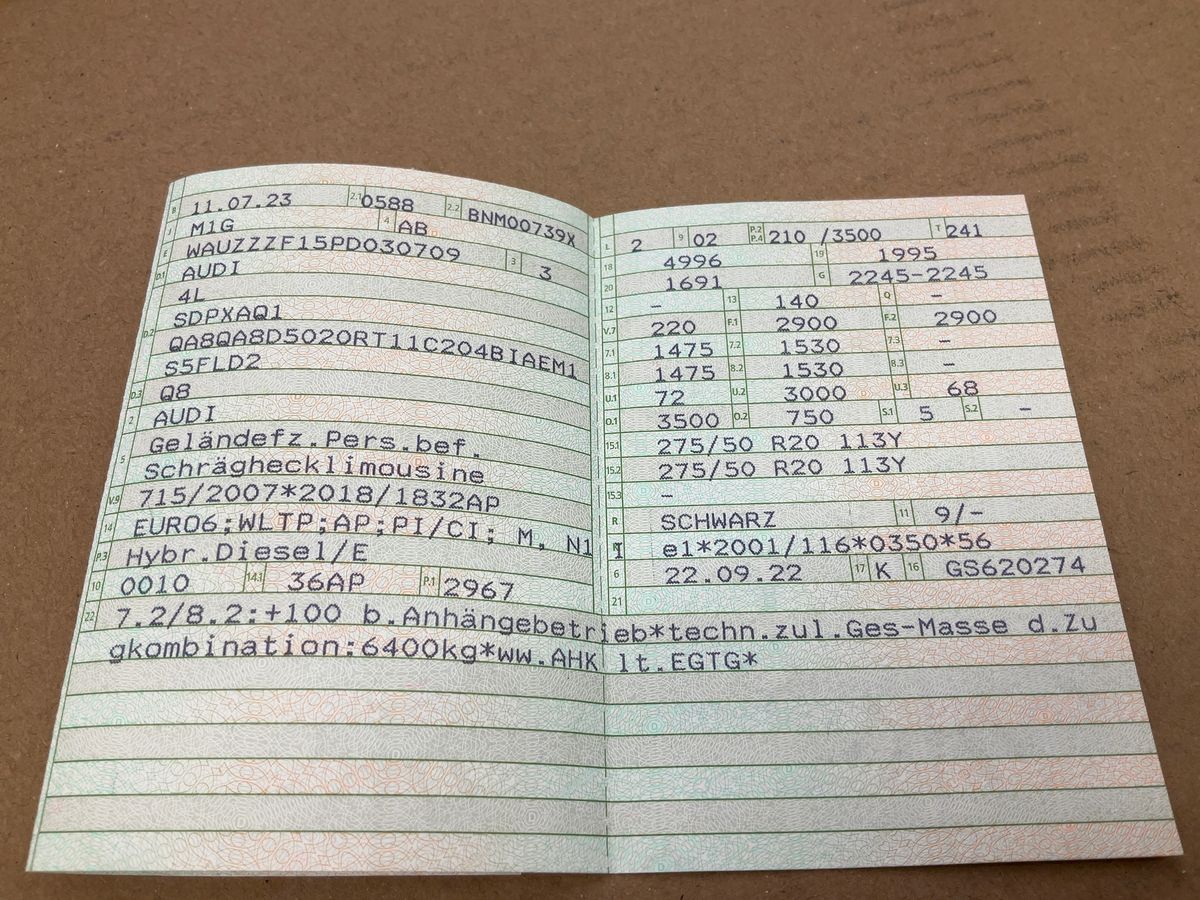 B 11.07.23 2.1 0588 2.2 BNM00739X
J M1G 4 AB
E WAUZZZF15PD030709 3 3
D.1 AUDI
4L
D.2 SDPXAQ1
QA8QA8D5020RT11C204BIAEM1
S5FLD2
D.3 Q8
2 AUDI
5 Geländefz.Pers.bef.
Schräghecklimousine
V.9 715/2007*2018/1832AP
14 EURO6;WLTP;AP;PI/CI; M, N1 I
P.3 Hybr.Diesel/E
10 0010 14.1 36AP P.1 2967
L 2 9 02 P.2 P.4 210 /3500 T 241
18 4996 19 1995
20 1691 G 2245-2245
12 - 13 140 Q -
V.7 220 F.1 2900 F.2 2900
7.1 1475 7.2 1530 7.3 -
8.1 1475 8.2 1530 8.3 -
U.1 72 U.2 3000 U.3 68
O.1 3500 O.2 750 S.1 5 S.2 -
15.1 275/50 R20 113Y
15.2 275/50 R20 113Y
15.3 -
R SCHWARZ 11 9/-
e1*2001/116*0350*56
6 22.09.22 17 K 16 GS620274
21
22 7.2/8.2:+100 b.Anhängebetrieb*techn.zul.Ges-Masse d.Zu
gkombination:6400kg*ww.AHK lt.EGTG*